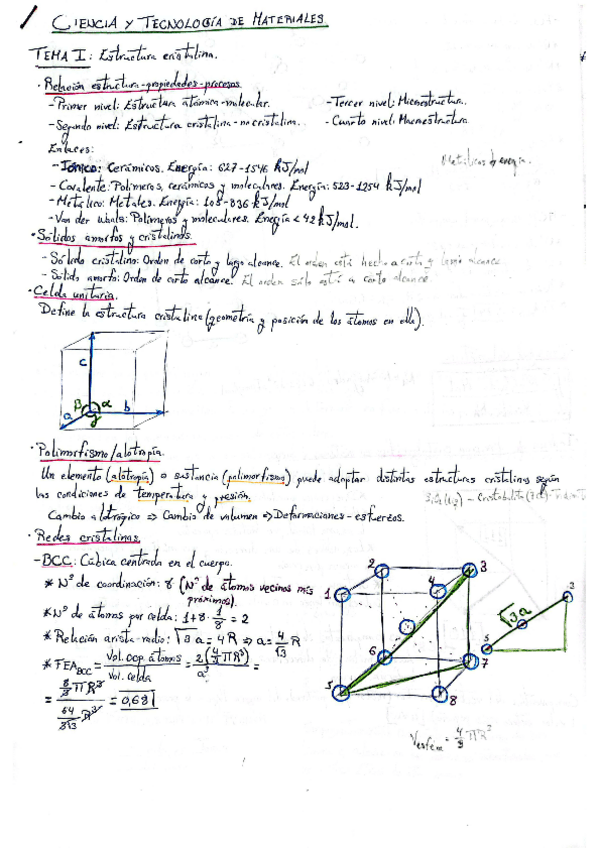 CIENCIA Y TECNOLOGÍA DE MATERIALES.
TEMA I: Estructura cristalina.
· Relación estructura-propiedades-procesos.
-Primer nivel: Estructura atómica-molecular. -Tercer nivel: Microestructura.
-Segundo nivel: Estructura cristalina-no cristalina. -Cuarto nivel: Macroestructura.
Enlaces:
-Iónico: Cerámicos. Energía: 627-1546 kJ/mol Metálicos energía.
-Covalente: Polímeros, cerámicos y moleculares. Energía: 523-1254 kJ/mol
-Metálico: Metales. Energía: 105-836 kJ/mol
-Van der Walls: Polímeros y moleculares. Energía < 42 kJ/mol.
· Sólidos amorfos y cristalinos.
-Sólido cristalino: Orden de corto y largo alcance. El orden está hecho a corto y largo alcance
-Sólido amorfo: Orden de corto alcance. El orden sólo está a corto alcance
· Celda unitaria.
Define la estructura cristalina (geometría y posición de los átomos en ella).
c
β α
a γ b
· Polimorfismo/alotropía.
Un elemento (alotropía) o sustancia (polimorfismo) puede adoptar distintas estructuras cristalinas según
las condiciones de temperatura y presión.
Cambio alotrópico ⇒ Cambio de volumen ⇒ Deformaciones-esfuerzos.
· Redes cristalinas.
-BCC: Cúbica centrada en el cuerpo.
* Nº de coordinación: 8 (Nº de átomos vecinos más
próximos).
* Nº de átomos por celda: 1+8·1/8 = 2
* Relación arista-radio: √3 a = 4R ⇒ a = 4/√3 R
* FEA BCC = Vol. ocp. átomos / Vol. celda = 2(4/3 πR³) / a³ =
= 8/3 πR³ / 64/3√3 R³ = 0,68
1 2 3 4 5 6 7 8
5 √3a 3
Vesfera = 4/3 πR³